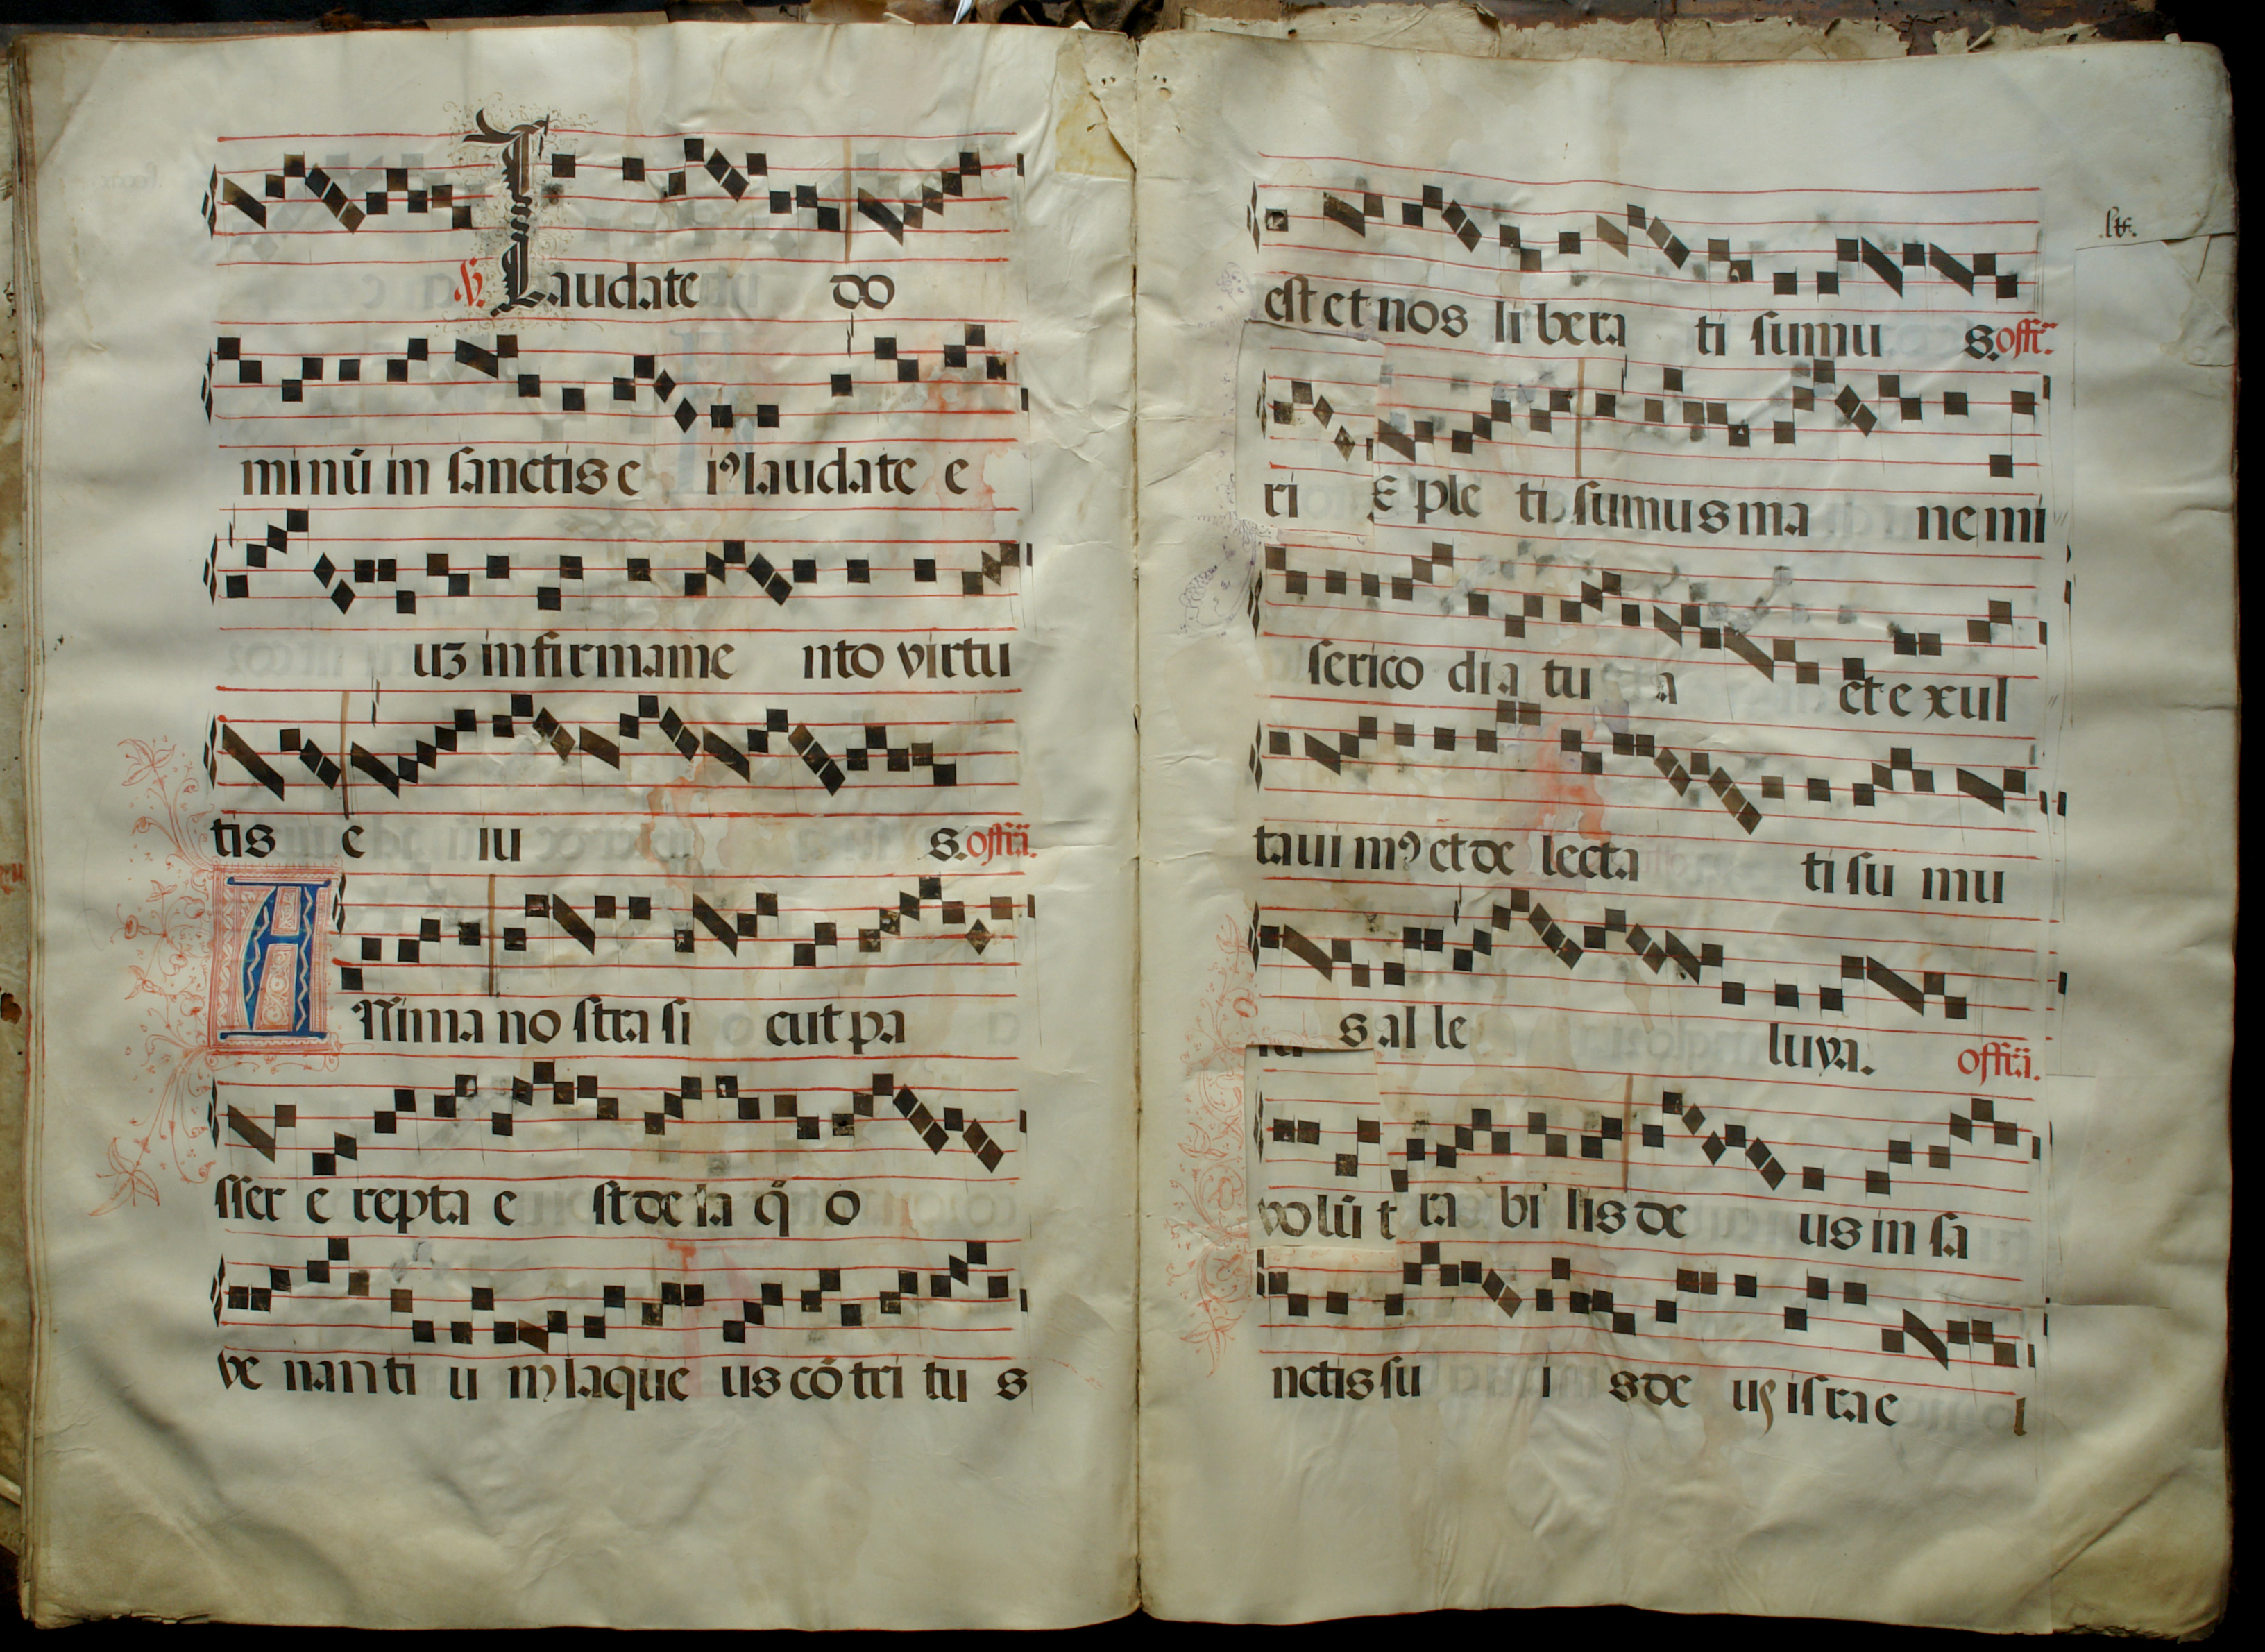 ℣. Laudate do
minū in sanctis e iꝰ laudate e
uʒ in firmame nto virtu
tis e iu s. offā.
Anima no stra si cut pa
sser e repta e st de la q̄ o
ve nanti u m laque us cōtri tu s
.lv.
est et nos libera ti sumu s. offā.
ri Eple ti sumus ma ne mi
serico dia tu a et exul
taui mꝰ et de lecta ti su mu
s al le luya. offā.
ra bi lis de us in sa
nctis su i s de us israe l